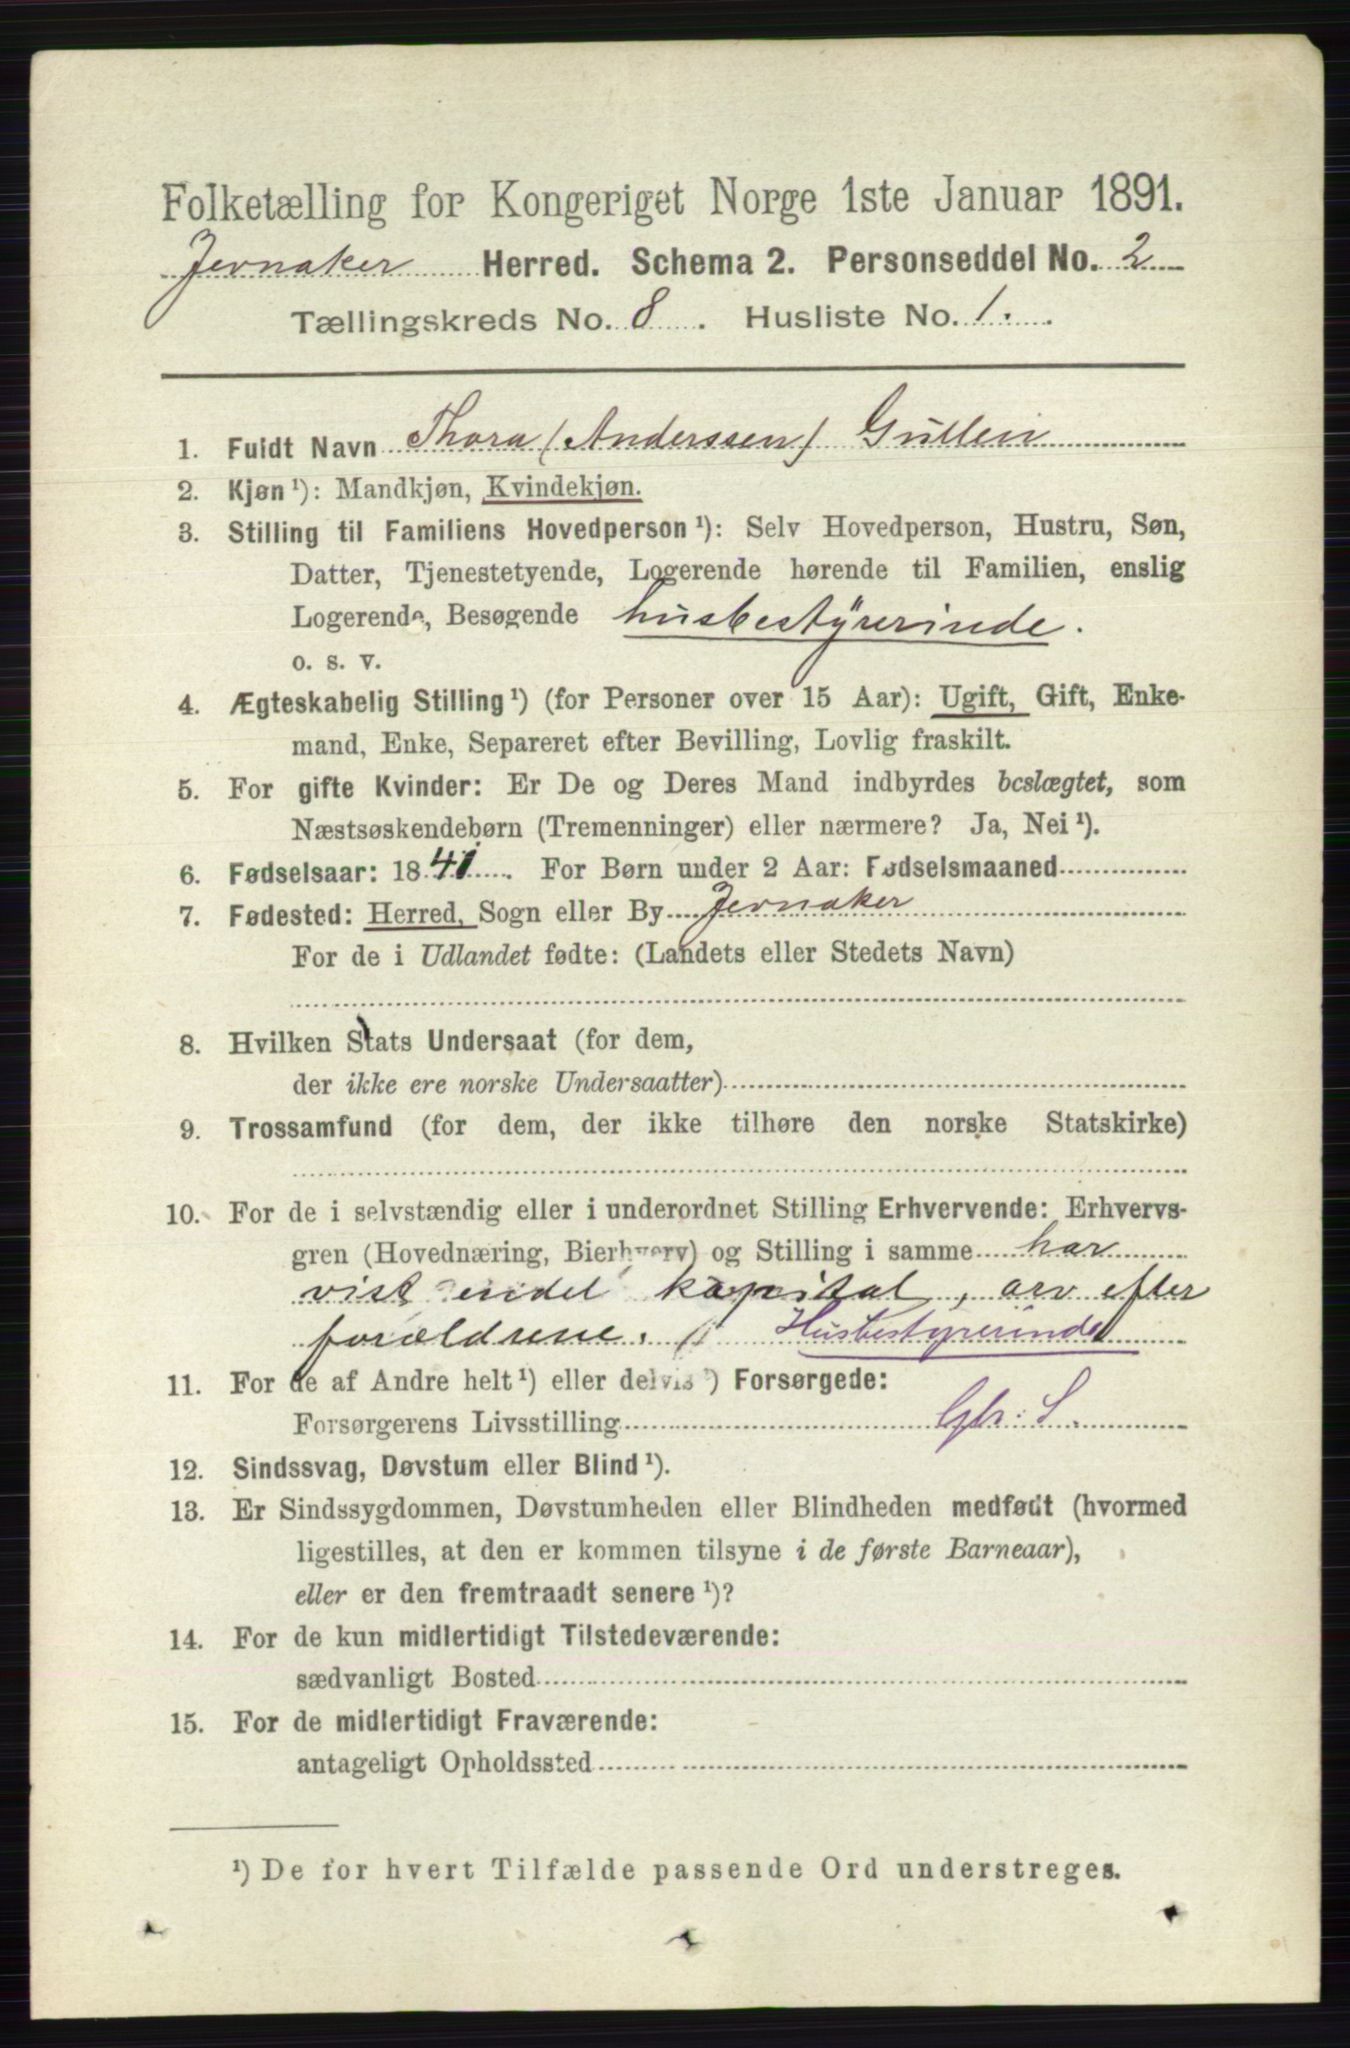 Folketælling for Kongeriget Norge 1ste Januar 1891.
Jevnaker Herred. Schema 2. Personseddel No. 2
Tællingskreds No. 8. Husliste No. 1.
1. Fuldt Navn Thora (Anderssen) Gullein
2. Kjøn ¹): Mandkjøn, Kvindekjøn.
3. Stilling til Familiens Hovedperson ¹): Selv Hovedperson, Hustru, Søn,
Datter, Tjenestetyende, Logerende hørende til Familien, enslig
Logerende, Besøgende husbestyrerinde.
o. s. v.
4. Ægteskabelig Stilling ¹) (for Personer over 15 Aar): Ugift, Gift, Enke-
mand, Enke, Separeret efter Bevilling, Lovlig fraskilt.
5. For gifte Kvinder: Er De og Deres Mand indbyrdes beslægtet, som
Næstsøskendebørn (Tremenninger) eller nærmere? Ja, Nei ¹).
6. Fødselsaar: 1841. For Børn under 2 Aar: Fødselsmaaned
7. Fødested: Herred, Sogn eller By Jevnaker
For de i Udlandet fødte: (Landets eller Stedets Navn)
8. Hvilken Stats Undersaat (for dem,
der ikke ere norske Undersaatter)
9. Trossamfund (for dem, der ikke tilhøre den norske Statskirke)
10. For de i selvstændig eller i underordnet Stilling Erhvervende: Erhvervs-
gren (Hovednæring, Bierhverv) og Stilling i samme har
vist endel kapital, arv efter
forældrene. Husbestyrerinde
11. For de af Andre helt ¹) eller delvis ¹) Forsørgede:
Forsørgerens Livsstilling Gbr: S.
12. Sindssvag, Døvstum eller Blind ¹).
13. Er Sindssygdommen, Døvstumheden eller Blindheden medfødt (hvormed
ligestilles, at den er kommen tilsyne i de første Barneaar),
eller er den fremtraadt senere ¹)?
14. For de kun midlertidigt Tilstedeværende:
sædvanligt Bosted
15. For de midlertidigt Fraværende:
antageligt Opholdssted
¹) De for hvert Tilfælde passende Ord understreges.